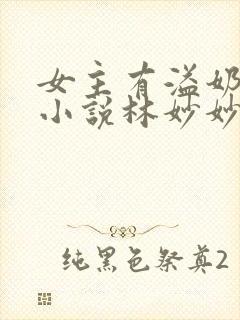 女主有溢奶
小说林妙妙
纯黑色祭奠2